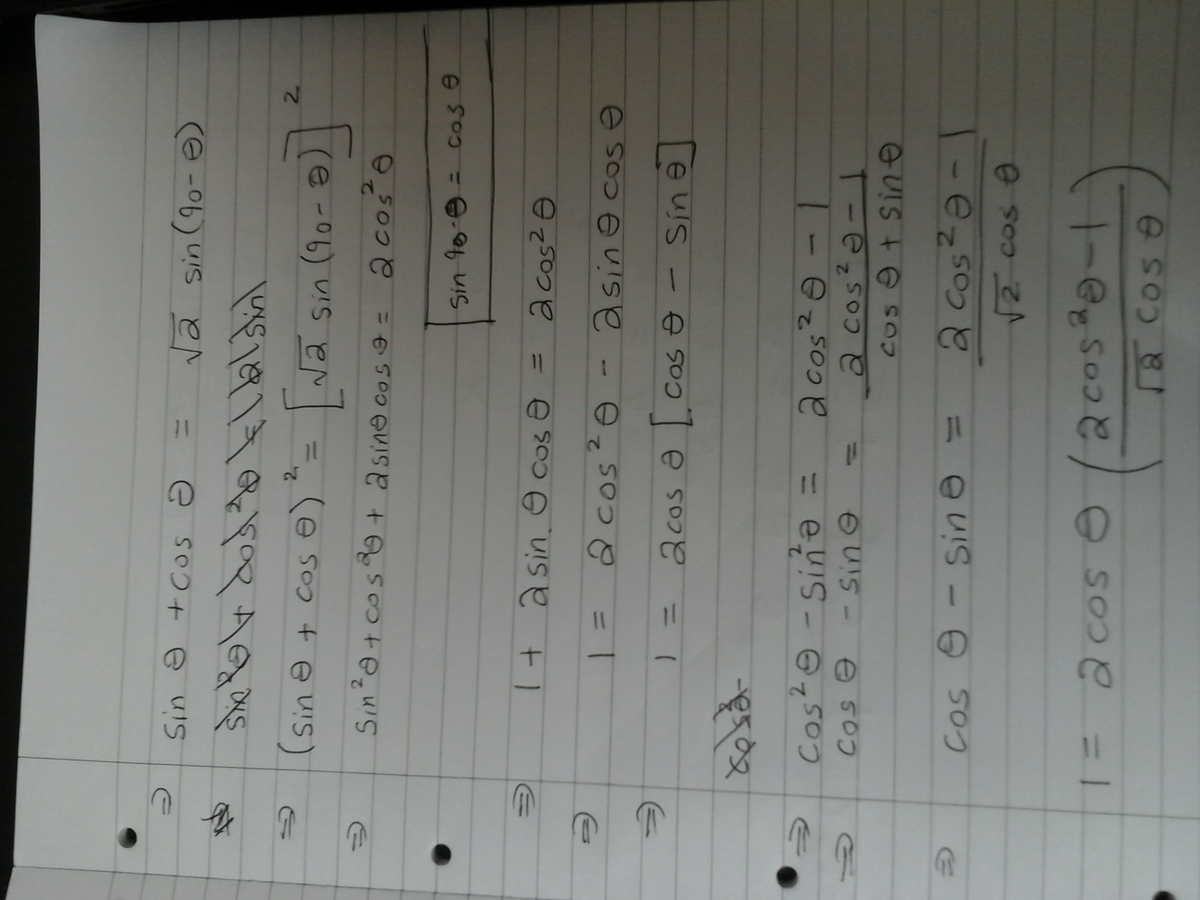 ⇒ sin θ + cos θ = √2 sin (90 - θ)
sin²θ + cos²θ =
⇒ (sin θ + cos θ)² = [√2 sin (90 - θ)]²
⇒ sin²θ + cos²θ + 2 sin θ cos θ = 2 cos²θ
sin 90-θ = cos θ
⇒ 1 + 2 sin θ cos θ = 2 cos²θ
⇒ 1 = 2 cos²θ - 2 sin θ cos θ
⇒ 1 = 2 cos θ [cos θ - sin θ]
⇒ cos²θ - sin²θ = 2 cos²θ - 1
⇒ cos θ - sin θ = 2 cos²θ - 1
cos θ + sin θ
⇒ cos θ - sin θ = 2 cos²θ - 1
√2 cos θ
1 = 2 cos θ (2 cos²θ - 1)
√2 cos θ